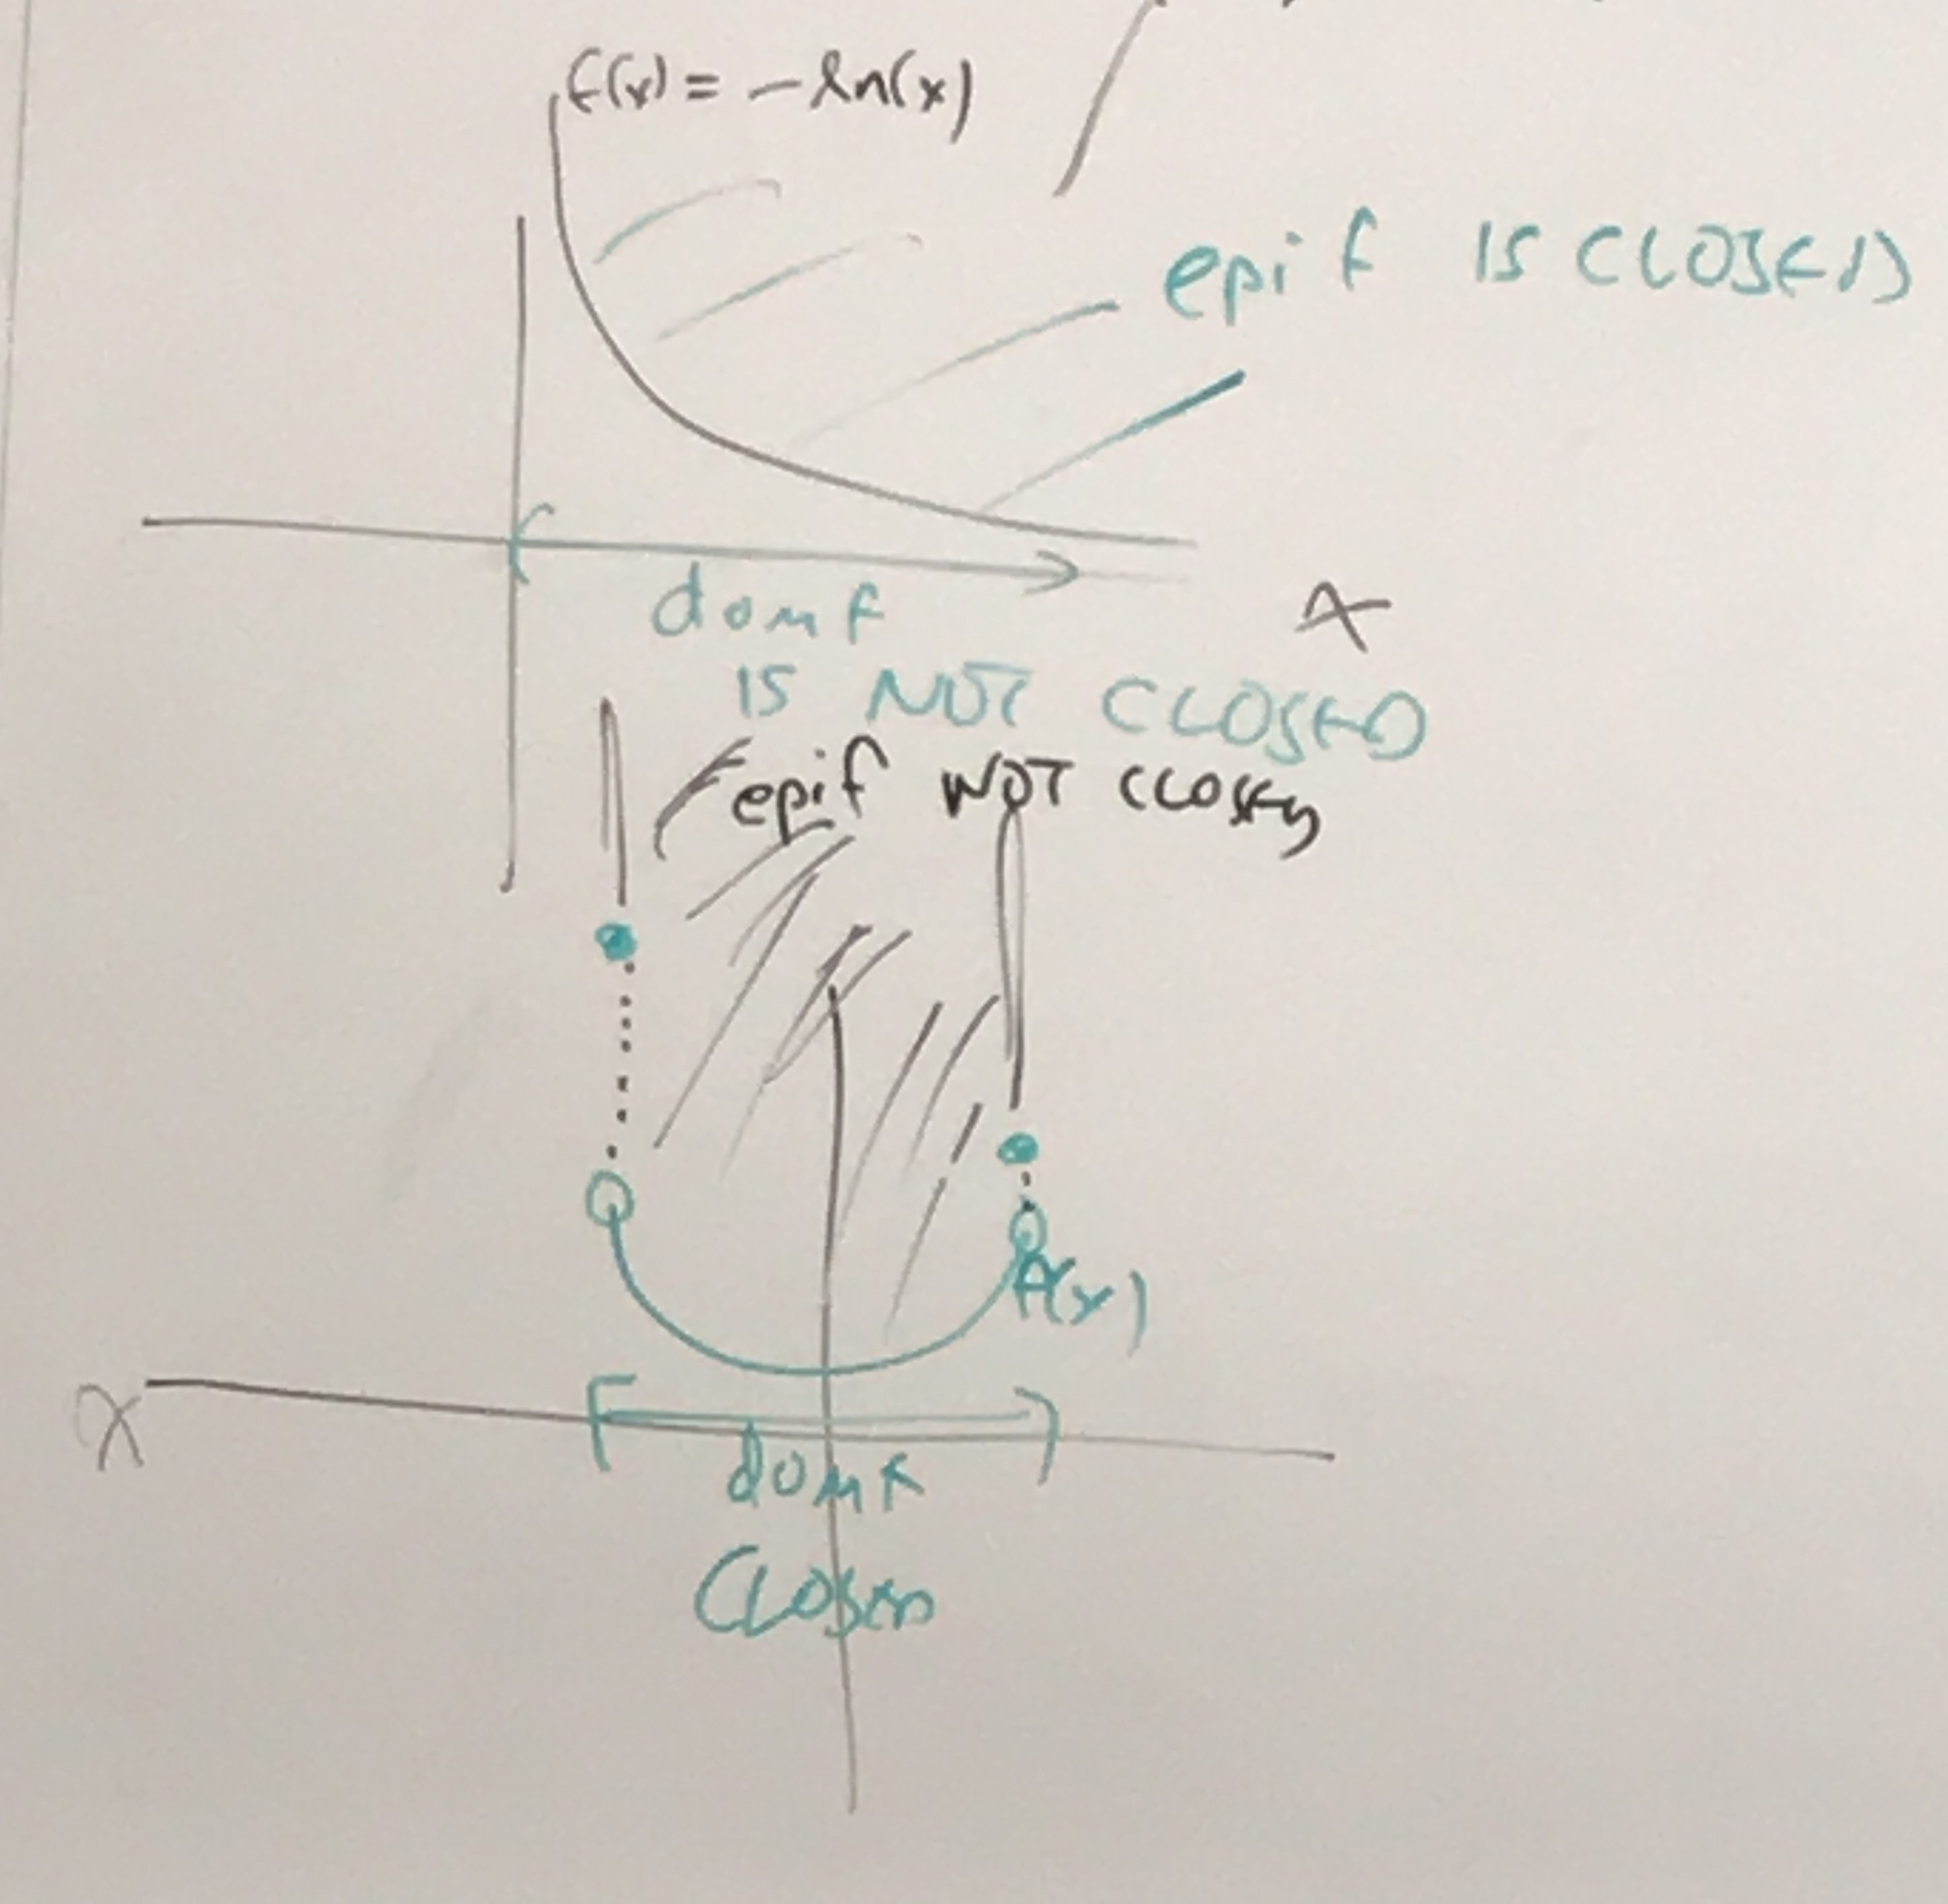 f(x) = -ln(x)
epi f IS CLOSED
dom f
IS NOT CLOSED
x
epi f NOT CLOSED
f(x)
x
dom f
CLOSED